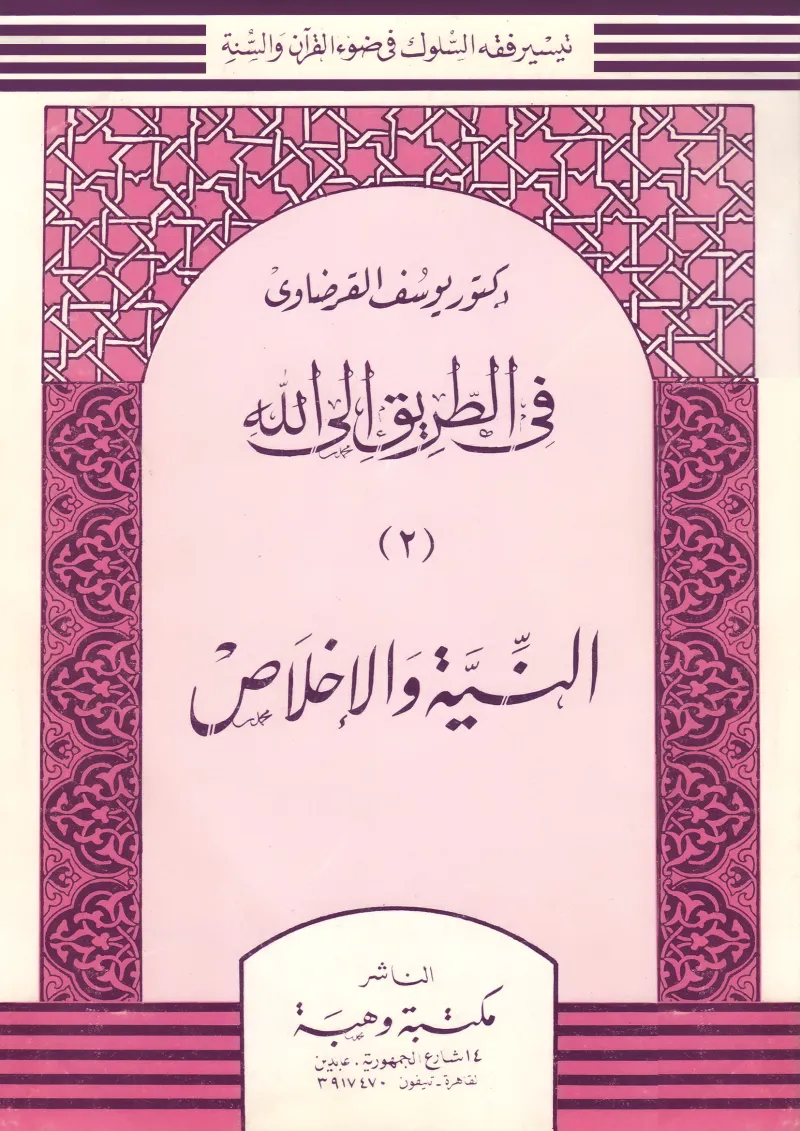 تيسير فقه السلوك في ضوء القرآن والسنة
دكتور يوسف القرضاوى
في الطريق إلى الله
(٢)
النية والإخلاص
الناشر
مكتبة وهبة
١٤ شارع الجمهورية . عابدين
القاهرة - تليفون ٣٩١٧٤٧٠